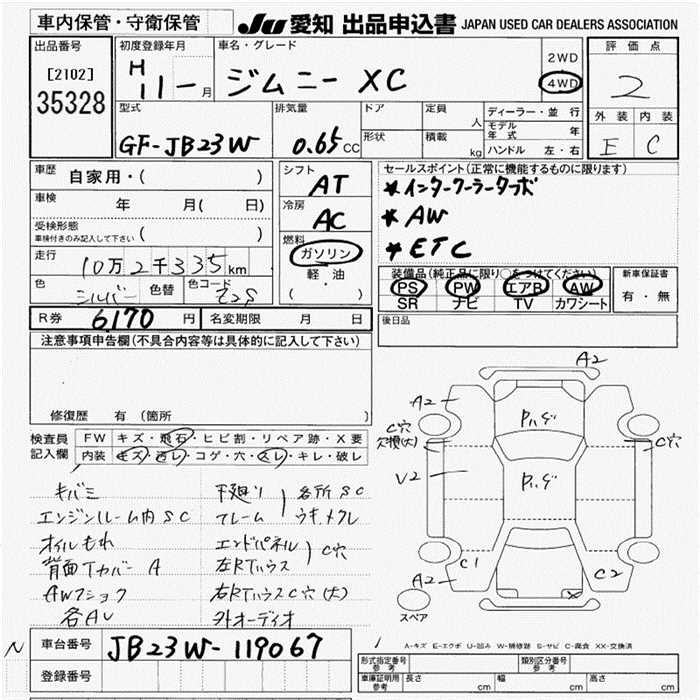 車内保管・守衛保管
JU 愛知 出品申込書 JAPAN USED CAR DEALERS ASSOCIATION
出品番号
[2102]
35328
初度登録年月
H
11 ー 月
車名・グレード
ジムニー XC
2WD
4WD
評価点
2
外装 内装
E C
型式
GF-JB23W
排気量
0.65 CC
ドア
形状
定員
人
積載
kg
ディーラー・並行
モデル年式 年
ハンドル 左・右
車歴
自家用・( )
車検
年 月( 日)
受検形態
車検付きのみ記入して下さい ( )
走行
10万2千335 km
色
シルバー
色替
色コード
Z2S
シフト
AT
冷房
AC
燃料
ガソリン
軽・油
( )
セールスポイント(正常に機能するものに限ります)
★インタークーラーターボ
★AW
★ETC
装備品(純正品に限り○をつけてください)
PS PW エアB AW
SR ナビ TV カワシート
新車保証書
有・無
R券 6,170 円
名変期限 月 日
後日品
注意事項申告欄(不具合内容等は具体的に記入して下さい)
修復歴 有 (箇所 )
検査員
記入欄
FW キズ・飛石・ヒビ割・リペア跡・X要
内装 キズ・汚レ・コゲ・穴・スレ・キレ・破レ
キバミ
エンジンルーム内SC
オイルもれ
背面TカバーA
AWフショク
各AU
下廻り 各所SC
フレーム ウキ、メクレ
エンドパネル C穴
左RTハウス
右RTハウスC穴(大)
外オーディオ
A2
A2
C穴
欠損(大)
C穴
P.ハゲ
P.ハゲ
U2
C1
C2
A2
X
スペア
A-キズ E-エクボ U-凹み W-補修跡 S-サビ C-腐食 XX-交換済
N
車台番号 JB23W-119067
登録番号
形式指定番号
参考
類別区分番号
参考
車庫証明用
参考
長さ cm
幅 cm
高さ cm